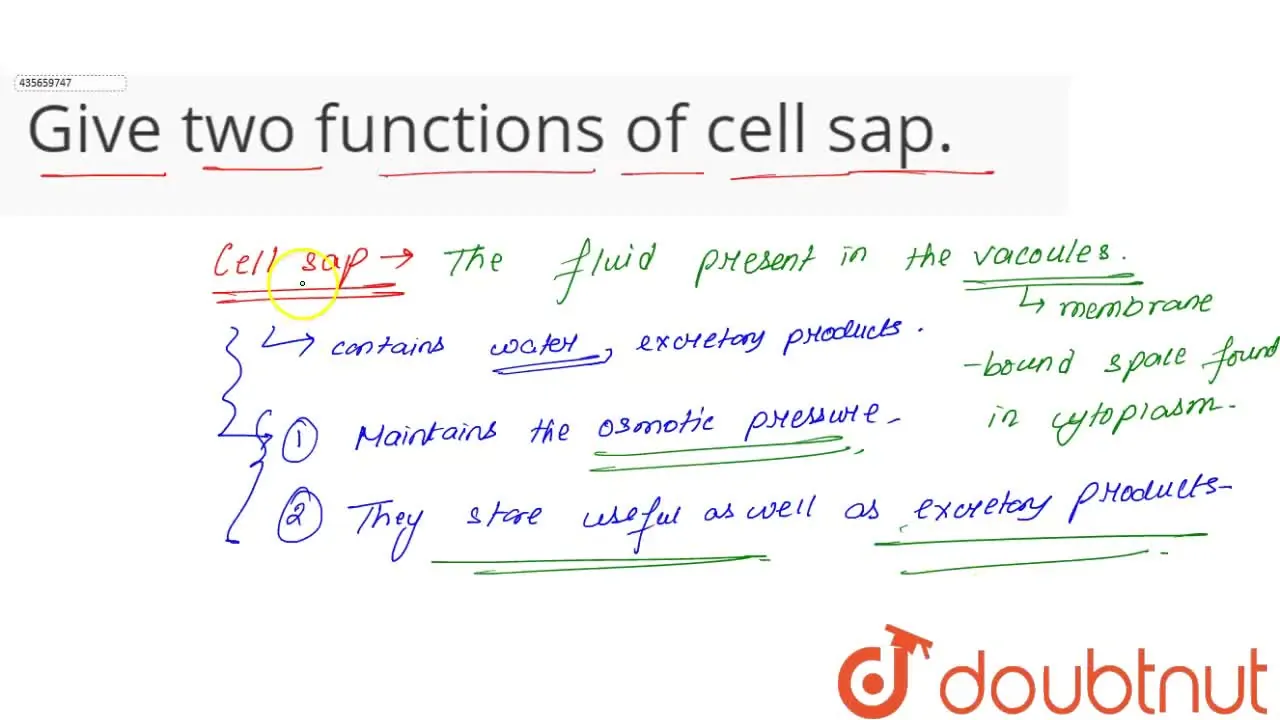 435659747
Give two functions of cell sap.
Cell sap → The fluid present in the vacoules.
↳ membrane
-bound space found
in cytoplasm.
↳ contains water, excretory products.
① Maintains the osmotic pressure.
② They store useful as well as excretory products.
doubtnut